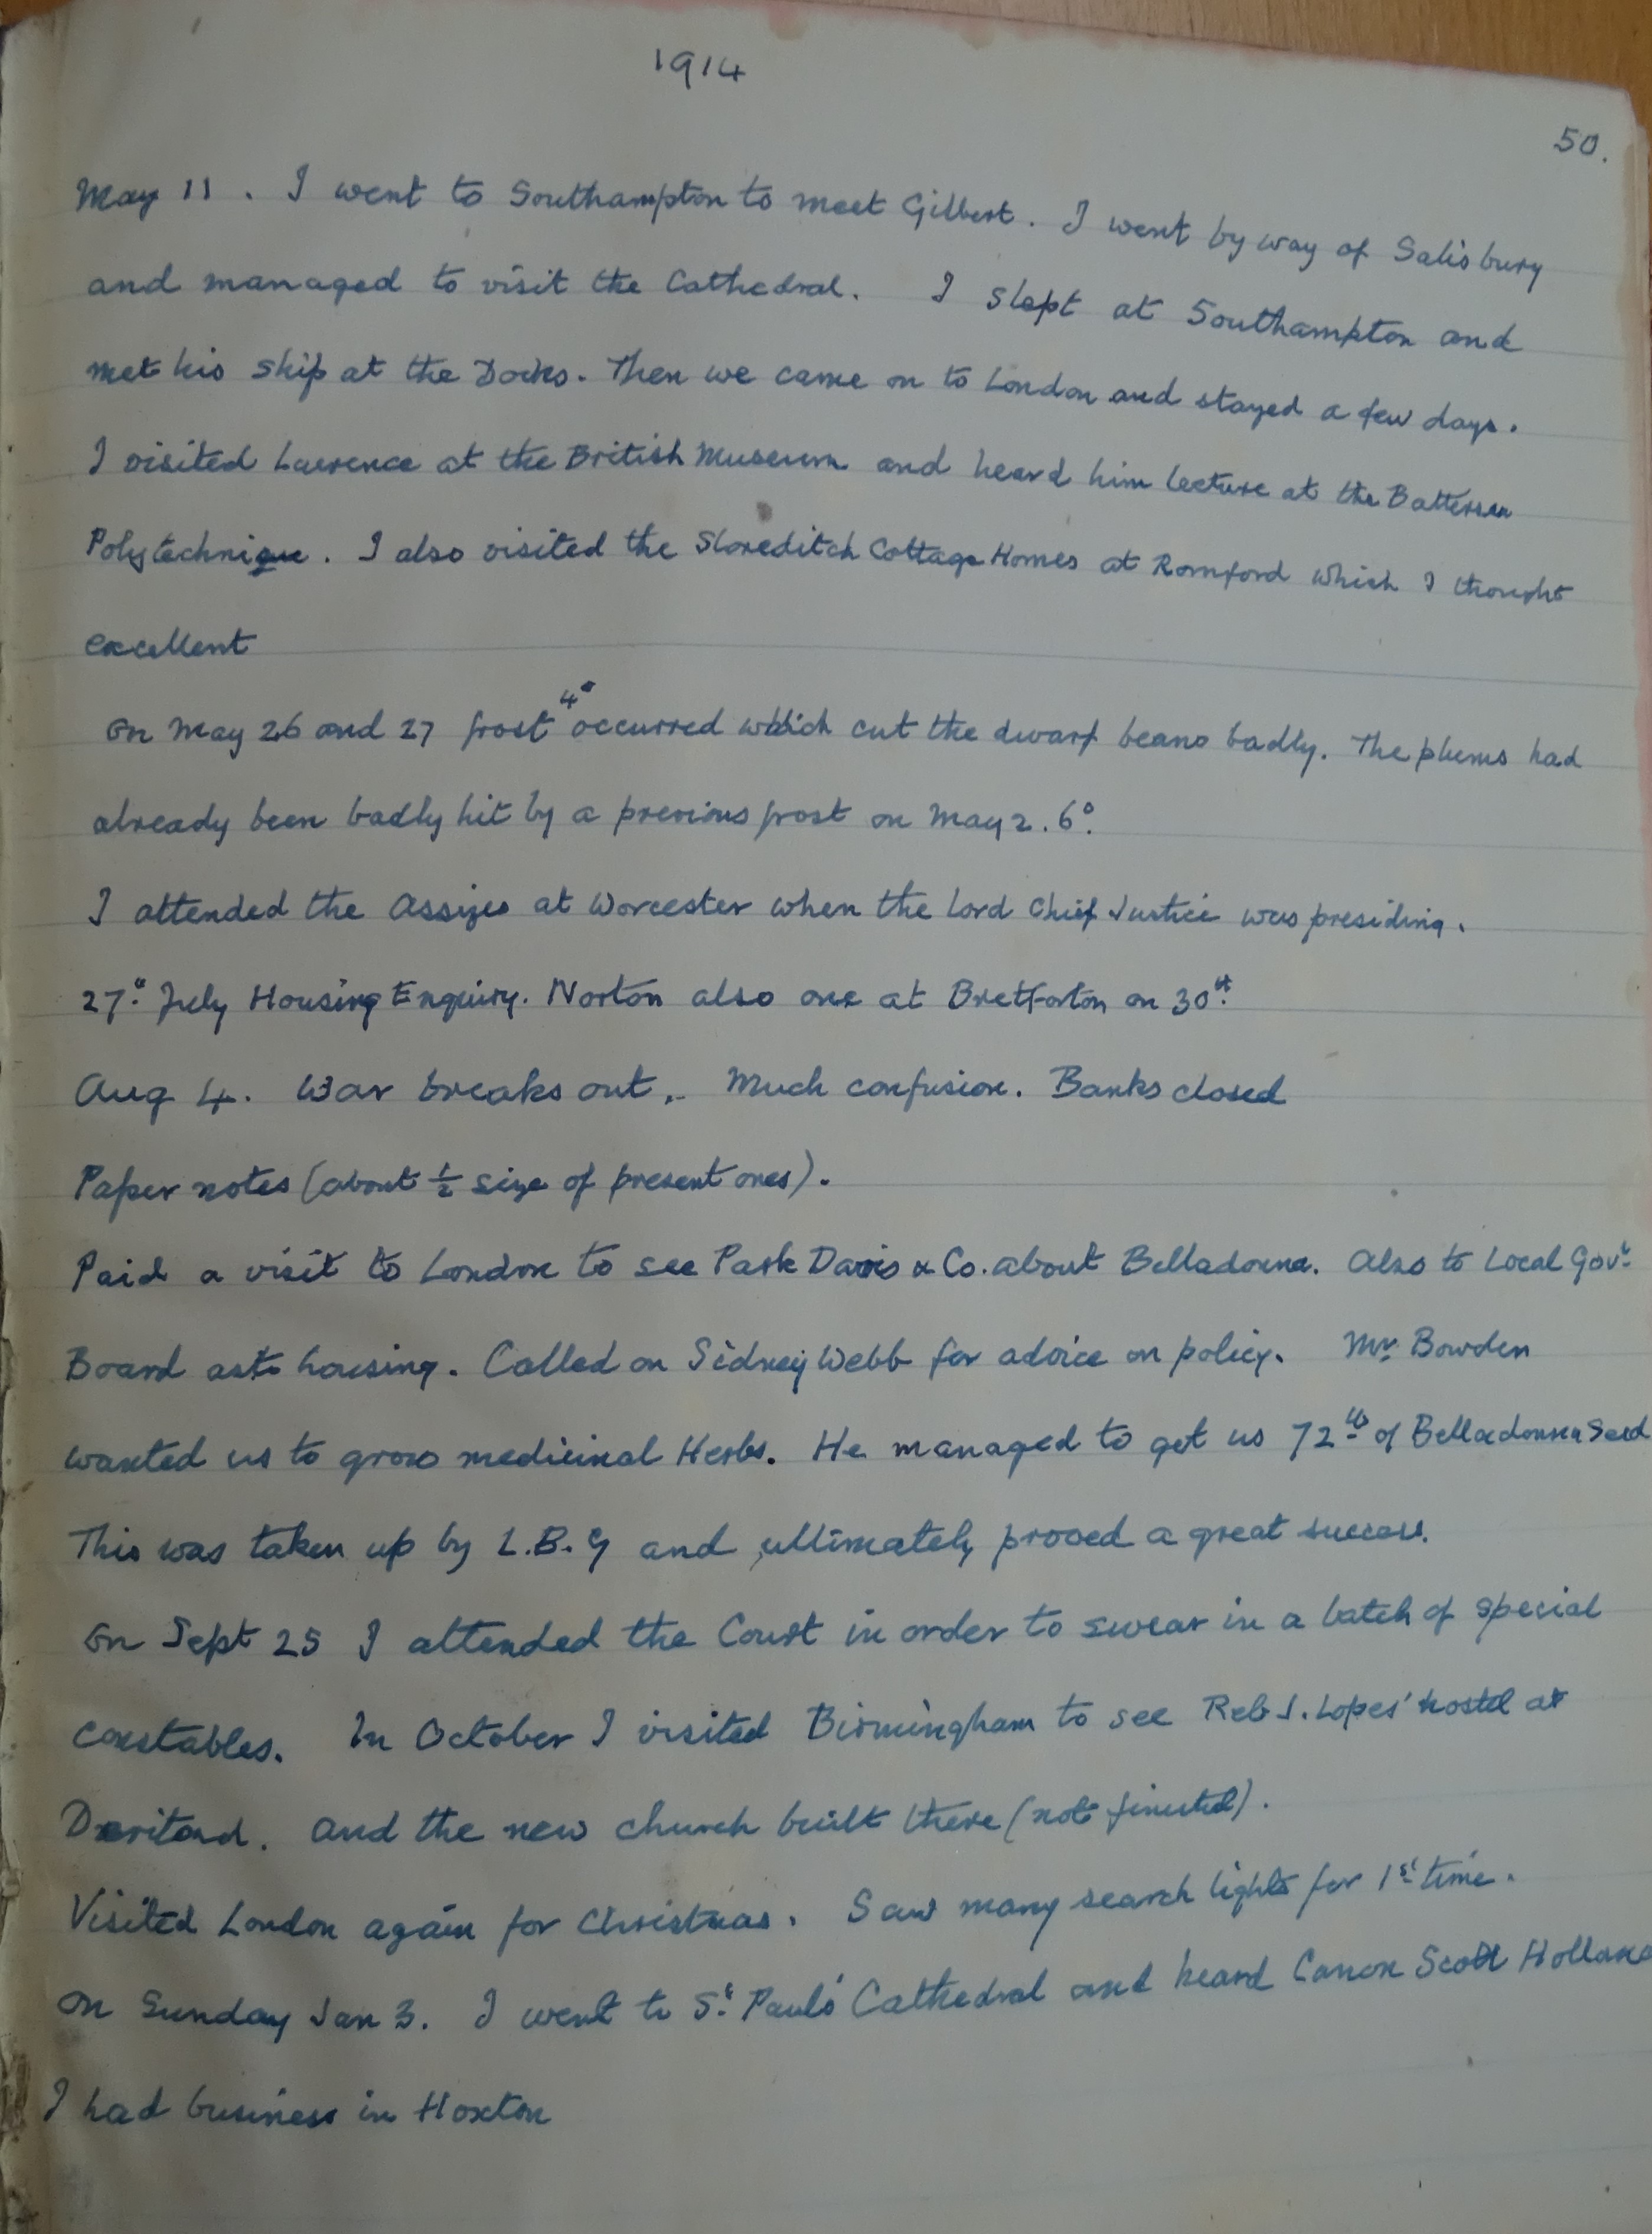 1914
50.
May 11. I went to Southampton to meet Gilbert. I went by way of Salisbury
and managed to visit the Cathedral. I slept at Southampton and
met his ship at the Docks. Then we came on to London and stayed a few days.
I visited Laurence at the British Museum and heard him lecture at the Battersea
Polytechnique. I also visited the Shoreditch Cottage Homes at Romford which I thought
excellent
On May 26 and 27 frost 4° occurred which cut the dwarf beans badly. The plums had
already been badly hit by a previous frost on May 2. 6°.
I attended the Assizes at Worcester when the Lord Chief Justice was presiding.
27th July Housing Enquiry. Norton also one at Bretforton on 30th.
Aug 4. War breaks out. Much confusion. Banks closed
Paper notes (about ½ size of present ones).
Paid a visit to London to see Park Davis & Co. about Belladonna. Also to Local Govt
Board as to housing. Called on Sidney Webb for advice on policy. Mr. Bowden
wanted us to grow medicinal Herbs. He managed to get us 72 lb of Belladonna Seed
This was taken up by L.B.G and ultimately proved a great success.
On Sept 25 I attended the Court in order to swear in a batch of special
constables. In October I visited Birmingham to see J. Lopes' hostel at
Deritend. and the new church built there (not finished).
Visited London again for Christmas. Saw many search lights for 1st time.
On Sunday Jan 3. I went to St. Pauls' Cathedral and heard Canon Scott Holland
I had business in Hoxton